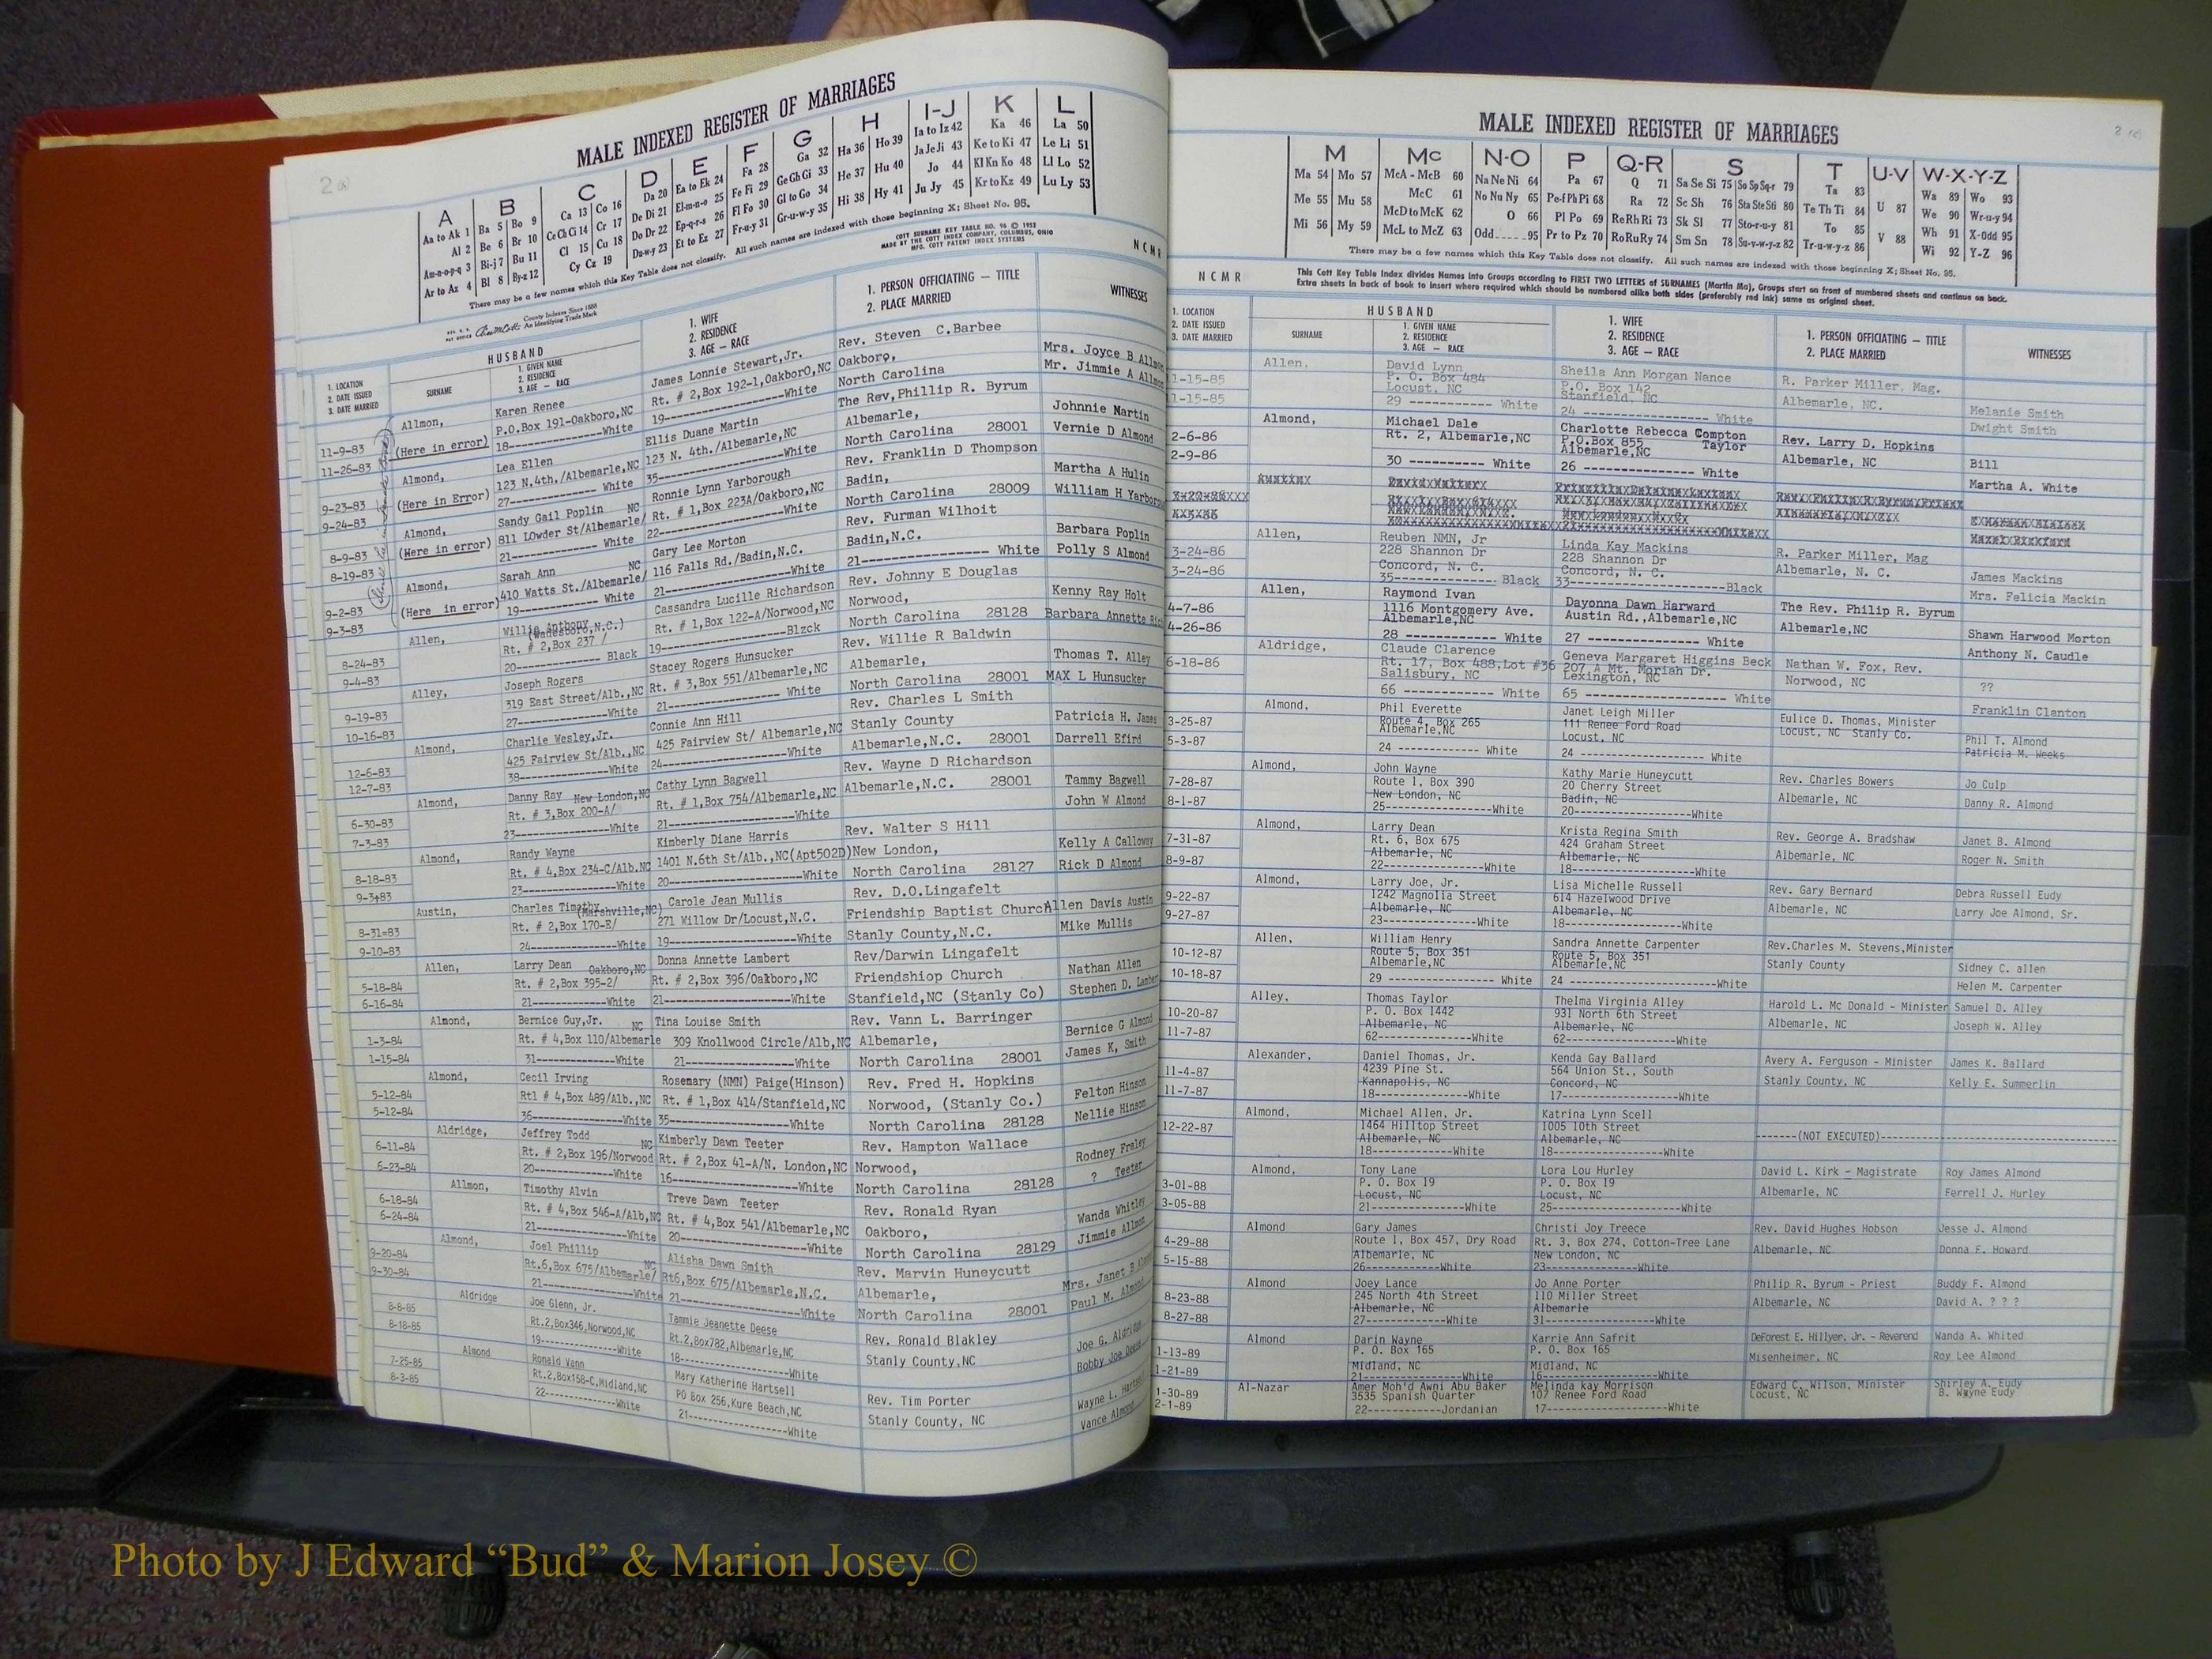 MALE INDEXED REGISTER OF MARRIAGES
A B C D E F G H I-J K L
Aa to Ak 1 Ba 5 Bo 9 Ca 13 Co 16 Da 20 Ea to Ek 24 Fa 28 Ga 32 Ha 36 Ho 39 Ia to Iz 42 Ka 46 La 50
Al 2 Be 6 Br 10 Ce Ch Ci 14 Cr 17 De Di 21 El-m-n-o 25 Fe Fi 29 Ge Gh Gi 33 He 37 Hu 40 Ja Je Ji 43 Ke to Ki 47 Le Li 51
Am-n-o-p-q 3 Bi-j 7 Bu 11 Cl 15 Cu 18 Do Dr 22 Ep-q-r-s 26 Fl Fo 30 Gl to Go 34 Hi 38 Hy 41 Jo 44 Kl Kn Ko 48 Ll Lo 52
Ar to Az 4 Bl 8 By-z 12 Cy Cz 19 Du-w-y 23 Et to Ez 27 Fr-u-y 31 Gr-u-w-y 35 Ju Jy 45 Kr to Kz 49 Lu Ly 53
There may be a few names which this Key Table does not classify. All such names are indexed with those beginning X; Sheet No. 95.
County Indexes Since 1888
An Identifying Trade Mark
COTT SURNAME KEY TABLE NO. 96 © 1953
MADE BY THE COTT INDEX COMPANY, COLUMBUS, OHIO
MFG. COTT PATENT INDEX SYSTEMS
NCMR
1. LOCATION
2. DATE ISSUED
3. DATE MARRIED
HUSBAND
SURNAME
1. GIVEN NAME
2. RESIDENCE
3. AGE — RACE
1. WIFE
2. RESIDENCE
3. AGE — RACE
1. PERSON OFFICIATING — TITLE
2. PLACE MARRIED
WITNESSES
Allmon, Karen Renee James Lonnie Stewart,Jr. Rev. Steven C.Barbee
11-9-83 P.O.Box 191-Oakboro,NC Rt. # 2,Box 192-1,OakborO,NC Oakboro, Mrs. Joyce B Allmon
11-26-83 (Here in error) 18---White 19---White North Carolina Mr. Jimmie A Allmon
Almond, Lea Ellen Ellis Duane Martin The Rev,Phillip R. Byrum
9-23-83 123 N.4th./Albemarle,NC 123 N. 4th./Albemarle,NC Albemarle, Johnnie Martin
9-24-83 (Here in Error) 27--- White 35---White North Carolina 28001 Vernie D Almond
Almond, Sandy Gail Poplin Ronnie Lynn Yarborough Rev. Franklin D Thompson
8-9-83 811 LOwder St/Albemarle/ NC Rt. # 1,Box 223A/Oakboro,NC Badin, Martha A Hulin
8-19-83 (Here in error) 21--- White 22---White North Carolina 28009 William H Yarboro
Almond, Sarah Ann Gary Lee Morton Rev. Furman Wilhoit
9-2-83 410 Watts St./Albemarle/ NC 116 Falls Rd./Badin,N.C. Badin,N.C. Barbara Poplin
9-3-83 (Here in error) 19--- White 21---White 21--- White Polly S Almond
Allen, Willie Anthony (Wadesboro,N.C.) Cassandra Lucille Richardson Rev. Johnny E Douglas
8-24-83 Rt. # 2,Box 237 / Rt. # 1,Box 122-A/Norwood,NC Norwood, Kenny Ray Holt
9-4-83 20--- Black 19---Blzck North Carolina 28128 Barbara Annette
Alley, Joseph Rogers Stacey Rogers Hunsucker Rev. Willie R Baldwin
9-19-83 319 East Street/Alb.,NC Rt. # 3,Box 551/Albemarle,NC Albemarle, Thomas T. Alley
10-16-83 27---White 21--- White North Carolina 28001 MAX L Hunsucker
Almond, Charlie Wesley,Jr. Connie Ann Hill Rev. Charles L Smith
12-6-83 425 Fairview St/Alb.,NC 425 Fairview St/ Albemarle,NC Stanly County Patricia H. James
12-7-83 38---White 24---White Albemarle,N.C. 28001 Darrell Efird
Almond, Danny Ray New London,NC Cathy Lynn Bagwell Rev. Wayne D Richardson
6-30-83 Rt. # 3,Box 200-A/ Rt. # 1,Box 754/Albemarle,NC Albemarle,N.C. 28001 Tammy Bagwell
7-3-83 23---White 21---White John W Almond
Almond, Randy Wayne Kimberly Diane Harris Rev. Walter S Hill
8-18-83 Rt. # 4,Box 234-C/Alb,NC 1401 N.6th St/Alb.,NC(Apt502D) New London, Kelly A Calloway
9-3+83 23---White 20---White North Carolina 28127 Rick D Almond
Austin, Charles Timothy (Marshville,NC) Carole Jean Mullis Rev. D.O.Lingafelt
8-31=83 Rt. # 2,Box 170-E/ 271 Willow Dr/Locust,N.C. Friendship Baptist Church Allen Davis Austin
9-10-83 24---White 19---White Stanly County,N.C. Mike Mullis
Allen, Larry Dean Oakboro,NC Donna Annette Lambert Rev/Darwin Lingafelt
5-18-84 Rt. # 2,Box 395-2/ Rt. # 2,Box 396/Oakboro,NC Friendshiop Church Nathan Allen
6-16-84 21---White 21---White Stanfield,NC (Stanly Co) Stephen D. Lambert
Almond, Bernice Guy,Jr. Tina Louise Smith Rev. Vann L. Barringer
1-3-84 Rt. # 4,Box 110/Albemarle NC 309 Knollwood Circle/Alb,NC Albemarle, Bernice G Almond
1-15-84 31---White 21---White North Carolina 28001 James K, Smith
Almond, Cecil Irving Rosemary (NMN) Paige(Hinson) Rev. Fred H. Hopkins
5-12-84 Rtl # 4,Box 489/Alb.,NC Rt. # 1,Box 414/Stanfield,NC Norwood, (Stanly Co.) Felton Hinson
5-12-84 36---White 35---White North Carolina 28128 Nellie Hinson
Aldridge, Jeffrey Todd Kimberly Dawn Teeter Rev. Hampton Wallace
6-11-84 Rt. # 2,Box 196/Norwood NC Rt. # 2,Box 41-A/N. London,NC Norwood, Rodney Fraley
6-23-84 20---White 16---White North Carolina 28128 ? Teeter
Allmon, Timothy Alvin Treve Dawn Teeter Rev. Ronald Ryan
6-18-84 Rt. # 4,Box 546-A/Alb,NC Rt. # 4,Box 541/Albemarle,NC Oakboro, Wanda Whitley
6-24-84 21---White 20---White North Carolina 28129 Jimmie Allmon
Almond, Joel Phillip Alisha Dawn Smith Rev. Marvin Huneycutt
9-20-84 Rt.6,Box 675/Albemarle/ NC Rt6,Box 675/Albemarle,N.C. Albemarle, Mrs. Janet B
9-30-84 21---White 21---White North Carolina 28001 Paul M. Almond
Aldridge Joe Glenn, Jr. Tammie Jeanette Deese
8-8-85 Rt.2,Box346,Norwood,NC Rt.2,Box782,Albemarle,NC Rev. Ronald Blakley Joe G. Aldridge
8-18-85 19---White 18---White Stanly County,NC Bobby Joe Deese
Almond Ronald Vann Mary Katherine Hartsell
7-25-85 Rt.2,Box158-C,Midland,NC PO Box 256,Kure Beach,NC Rev. Tim Porter Wayne L. Hartsell
8-3-85 22---White 21---White Stanly County, NC Vance Almond
MALE INDEXED REGISTER OF MARRIAGES
M Mc N-O P Q-R S T U-V W-X-Y-Z
Ma 54 Mo 57 McA - McB 60 Na Ne Ni 64 Pa 67 Q 71 Sa Se Si 75 So Sp Sq-r 79 Ta 83 U 87 Wa 89 Wo 93
Me 55 Mu 58 McC 61 No Nu Ny 65 Pe-f Ph Pi 68 Ra 72 Sc Sh 76 Sta Ste Sti 80 Te Th Ti 84 V 88 We 90 Wr-u-y 94
Mi 56 My 59 McD to McK 62 O 66 Pl Po 69 Re Rh Ri 73 Sk Sl 77 Sto-r-u-y 81 To 85 Wh 91 X-Odd 95
McL to McZ 63 Odd 95 Pr to Pz 70 Ro Ru Ry 74 Sm Sn 78 Su-v-w-y-z 82 Tr-u-w-y-z 86 Wi 92 Y-Z 96
There may be a few names which this Key Table does not classify. All such names are indexed with those beginning X; Sheet No. 95.
NCMR
This Cott Key Table Index divides Names into Groups according to FIRST TWO LETTERS of SURNAMES (Martin Ma), Groups start on front of numbered sheets and continue on back.
Extra sheets in back of book to insert where required which should be numbered alike both sides (preferably red ink) same as original sheet.
1. LOCATION
2. DATE ISSUED
3. DATE MARRIED
HUSBAND
SURNAME
1. GIVEN NAME
2. RESIDENCE
3. AGE — RACE
1. WIFE
2. RESIDENCE
3. AGE — RACE
1. PERSON OFFICIATING — TITLE
2. PLACE MARRIED
WITNESSES
Allen, David Lynn Sheila Ann Morgan Nance
1-15-85 P. O. Box 484 P.O. Box 142 R. Parker Miller, Mag.
1-15-85 Locust, NC Stanfield, NC Albemarle, NC. Melanie Smith
29 --- White 24 --- White Dwight Smith
Almond, Michael Dale Charlotte Rebecca Compton Taylor
2-6-86 Rt. 2, Albemarle,NC P.O.Box 855 Rev. Larry D. Hopkins
2-9-86 Albemarle,NC Albemarle, NC Bill
30 --- White 26 --- White Martha A. White
Allen, Reuben NMN, Jr Linda Kay Mackins
3-24-86 228 Shannon Dr 228 Shannon Dr R. Parker Miller, Mag
3-24-86 Concord, N. C. Concord, N. C. Albemarle, N. C. James Mackins
35--- Black 33---Black Mrs. Felicia Mackin
Allen, Raymond Ivan Dayonna Dawn Harward
4-7-86 1116 Montgomery Ave. Austin Rd.,Albemarle,NC The Rev. Philip R. Byrum
4-26-86 Albemarle,NC Albemarle,NC Shawn Harwood Morton
28 --- White 27 --- White Anthony N. Caudle
Aldridge, Claude Clarence Geneva Margaret Higgins Beck
6-18-86 Rt. 17, Box 488,Lot #36 207 A Mt. Moriah Dr. Nathan W. Fox, Rev.
Salisbury, NC Lexington, NC Norwood, NC ??
66 --- White 65 --- White Franklin Clanton
Almond, Phil Everette Janet Leigh Miller
3-25-87 Route 4, Box 265 111 Renee Ford Road Eulice D. Thomas, Minister
5-3-87 Albemarle,NC Locust, NC Locust, NC Stanly Co. Phil T. Almond
24 --- White 24 --- White Patricia M. Weeks
Almond, John Wayne Kathy Marie Huneycutt
7-28-87 Route 1, Box 390 20 Cherry Street Rev. Charles Bowers Jo Culp
8-1-87 New London, NC Badin, NC Albemarle, NC Danny R. Almond
25---White 20---White
Almond, Larry Dean Krista Regina Smith
7-31-87 Rt. 6, Box 675 424 Graham Street Rev. George A. Bradshaw Janet B. Almond
8-9-87 Albemarle, NC Albemarle, NC Albemarle, NC Roger N. Smith
22---White 18---White
Almond, Larry Joe, Jr. Lisa Michelle Russell
9-22-87 1242 Magnolia Street 614 Hazelwood Drive Rev. Gary Bernard Debra Russell Eudy
9-27-87 Albemarle, NC Albemarle, NC Albemarle, NC Larry Joe Almond, Sr.
23---White 18---White
Allen, William Henry Sandra Annette Carpenter
10-12-87 Route 5, Box 351 Route 5, Box 351 Rev.Charles M. Stevens,Minister
10-18-87 Albemarle,NC Albemarle,NC Stanly County Sidney C. allen
29 --- White 24 ---White Helen M. Carpenter
Alley. Thomas Taylor Thelma Virginia Alley
10-20-87 P. O. Box 1442 931 North 6th Street Harold L. Mc Donald - Minister Samuel D. Alley
11-7-87 Albemarle, NC Albemarle, NC Albemarle, NC Joseph W. Alley
62---White 62---White
Alexander, Daniel Thomas, Jr. Kenda Gay Ballard
11-4-87 4239 Pine St. 564 Union St., South Avery A. Ferguson - Minister James K. Ballard
11-7-87 Kannapolis, NC Concord, NC Stanly County, NC Kelly E. Summerlin
18---White 17---White
Almond, Michael Allen, Jr. Katrina Lynn Scell
12-22-87 1464 Hilltop Street 1005 10th Street ---(NOT EXECUTED)---
Albemarle, NC Albemarle, NC
18---White 18---White
Almond, Tony Lane Lora Lou Hurley
3-01-88 P. O. Box 19 P. O. Box 19 David L. Kirk - Magistrate Roy James Almond
3-05-88 Locust, NC Locust, NC Albemarle, NC Ferrell J. Hurley
21---White 25---White
Almond Gary James Christi Joy Treece
4-29-88 Route 1, Box 457, Dry Road Rt. 3, Box 274, Cotton-Tree Lane Rev. David Hughes Hobson Jesse J. Almond
5-15-88 Albemarle, NC New London, NC Albemarle, NC Donna F. Howard
26---White 23---White
Almond Joey Lance Jo Anne Porter
8-23-88 245 North 4th Street 110 Miller Street Philip R. Byrum - Priest Buddy F. Almond
8-27-88 Albemarle, NC Albemarle Albemarle, NC David A. ? ? ?
27---White 31---White
Almond Darin Wayne Karrie Ann Safrit
1-13-89 P. O. Box 165 P. O. Box 165 DeForest E. Hillyer, Jr. - Reverend Wanda A. Whited
1-21-89 Midland, NC Midland, NC Misenheimer, NC Roy Lee Almond
21---White 16---White
Al-Nazar Amer Moh'd Awni Abu Baker Melinda kay Morrison Edward C. Wilson, Minister Shirley A. Eudy
1-30-89 3535 Spanish Quarter 107 Renee Ford Road Locust, NC B. Wayne Eudy
2-1-89 22---Jordanian 17---White
Photo by J Edward “Bud” & Marion Josey ©